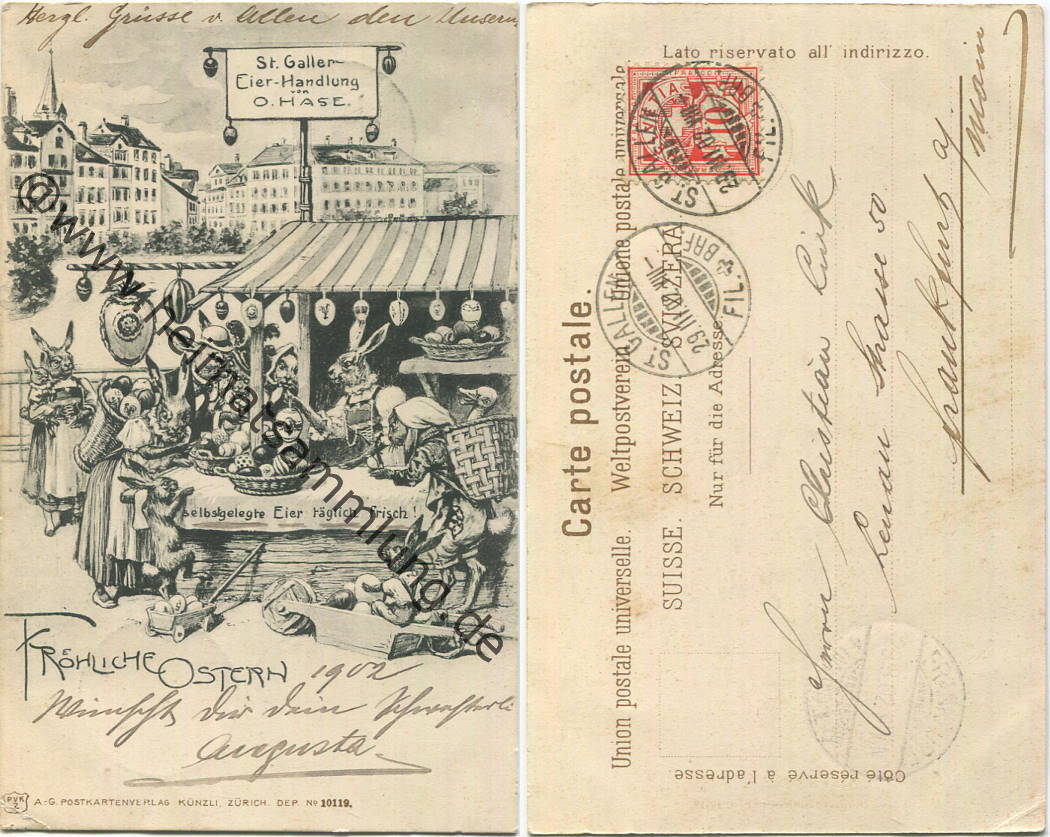 Herzl. Grüsse v. Allen den Unsern
St. Galler-
Eier-Handlung
von
O. HASE.
selbstgelegte Eier täglich frisch!
FRÖHLICHE OSTERN
1902
Wünscht Dir dein Schwesterli
Augusta
PVK
Z
A.-G. POSTKARTENVERLAG KÜNZLI, ZÜRICH. DEP. № 10119.
@www.heimatsammlung.de
Lato riservato all' indirizzo.
Carte postale.
Union postale universelle. Weltpostverein. Unione postale universale.
SUISSE. SCHWEIZ. SVIZZERA.
Nur für die Adresse.
Côté réservé à l'adresse.
FRANCO
HELVETIA
10
ST. GALLEN
BRF. FIL.
ST. GALLEN
29. III.
BRF. FIL.
Christian
strasse 50
Frankfurt a/
Main